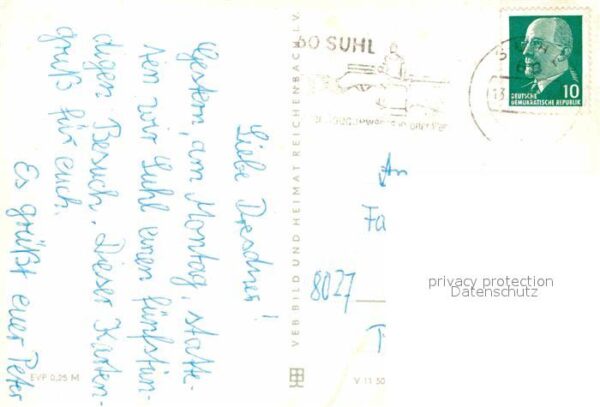 Liebe Dresdner!
Gestern, am Montag, statte-
ten wir Suhl einen fünfstün-
digen Besuch. Dieser Karten-
gruß für euch.
Es grüßt euer Peter
EVP 0,25 M
VEB BILD UND HEIMAT REICHENBACH I. V.
V 11 50
60 SUHL
DEUTSCHE
DEMOKRATISCHE REPUBLIK
10
An
Fa
8027
T
privacy protection
Datenschutz